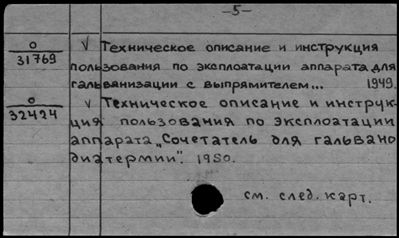 -5-
0
31769
V Техническое описание и инструкция
пользования по эксплоатации аппарата для
гальванизации с выпрямителем... 1949.
0
32424
V Техническое описание и инструк-
ция пользования по эксплоатации
аппарата „Сочетатель для гальвано
диатермии". 1950.
см. след. карт.